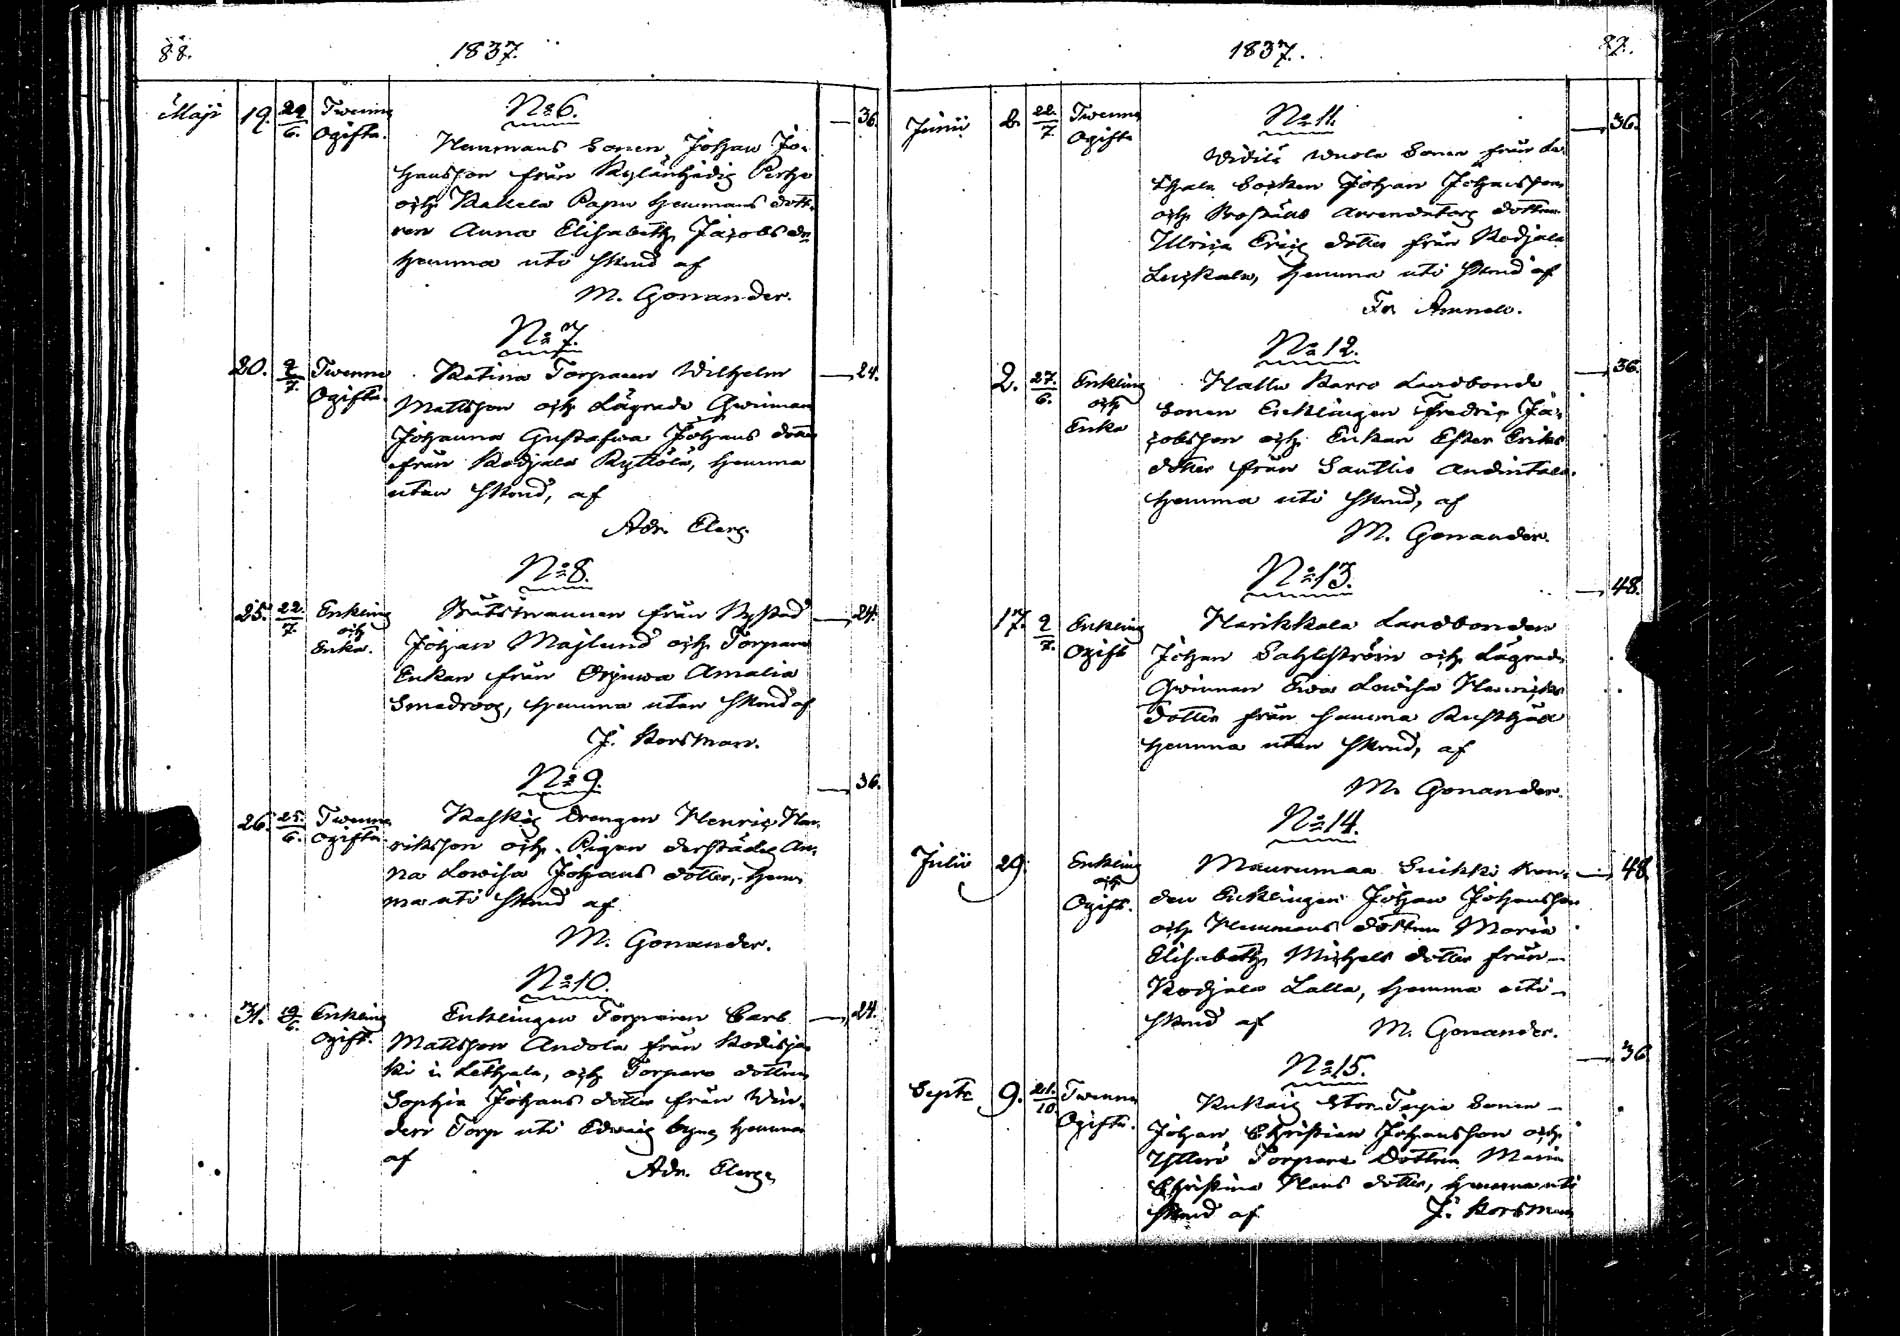 88.
1837.
Maji 19. 22/6. Twenne Ogifta.
No 6.
36.
Hemmans Sonen Johan Jo-
hansson från Kylänhidig Perho
och Kallela Papu hemmans dott-
ren Anna Elisabeth Jacobs dr
hemma uti Stond af
M. Gonander.
No 7.
20. 2/7. Twenne Ogifta.
24.
Katina Torparen Wilhelm
Mattsson och Lägrade Qwinnan
Johanna Gustafwa Johans dotter
från Kodjala Kyttölä, hemma
utan Stond, af
Adr. Elerg.
No 8.
25. 22./7. Enkling och Enka.
24.
Båtsmannen från Nystad
Johan Majlund och Torpare
Enkan från Amalia
Smedroos, hemma utan Stond af
J. Korsman.
No 9.
36.
26. 25./6. Twenne Ogifta.
Drengen Henric Hen-
riksson och Pigan derstädes An-
na Lowisa Johans dotter, hem-
ma uti Stond af
M. Gonander.
No 10.
31. Enkling Ogift.
24.
Enklingen Torparen Carl
Mattsson Andola från Kodisjo-
ki i Lethala, och Torpare dottren
Sophia Johans dotter från Win-
der Torp uti by, hemma
af
Adr. Elerg.
1837.
87.
Junii 2. 22./7 Twenne Ogifta
No 11.
36.
Sonen från Le-
thala Socken Johan Johansson
och Arrendators dottren
Ulrica Eric dotter från Kodjala
Leikala, hemma uti Stond af
Fr. Amnelo.
No 12.
2. 27./6. Enkling och Enka
36.
Halla Karro Landbonde
Sonen Encklingen Fredric Ja-
cobsson och Enkan Ester Eriks
dotter från Santtio Andintalo.
hemma uti Stond, af
M. Gonander.
No 13.
48.
17. 2/7. Enkling Ogift
Harikkala Landbonden
Johan Sahlström och Lägrade
Qwinnan Ewa Lowisa Henricks
dotter från samma Rusthåll
hemma utan Stond, af
M. Gonander.
No 14.
Julii 29. Enkling och Ogift.
48.
Maurumaa Suikki Bon-
den Enklingen Johan Johansson
och Hemmans dottren Maria
Elisabeth Michels dotter från
Kodjala Lalla, hemma uti
Stond af M. Gonander.
No 15.
36
Septr 9. 21./10 Twenne Ogifta.
Stor Torpe Sonen
Johan Christian Johansson och
Ytterö Torpare Dottren Maria
Christina Hans dotter, hemma uti
Stond af J. Korsman